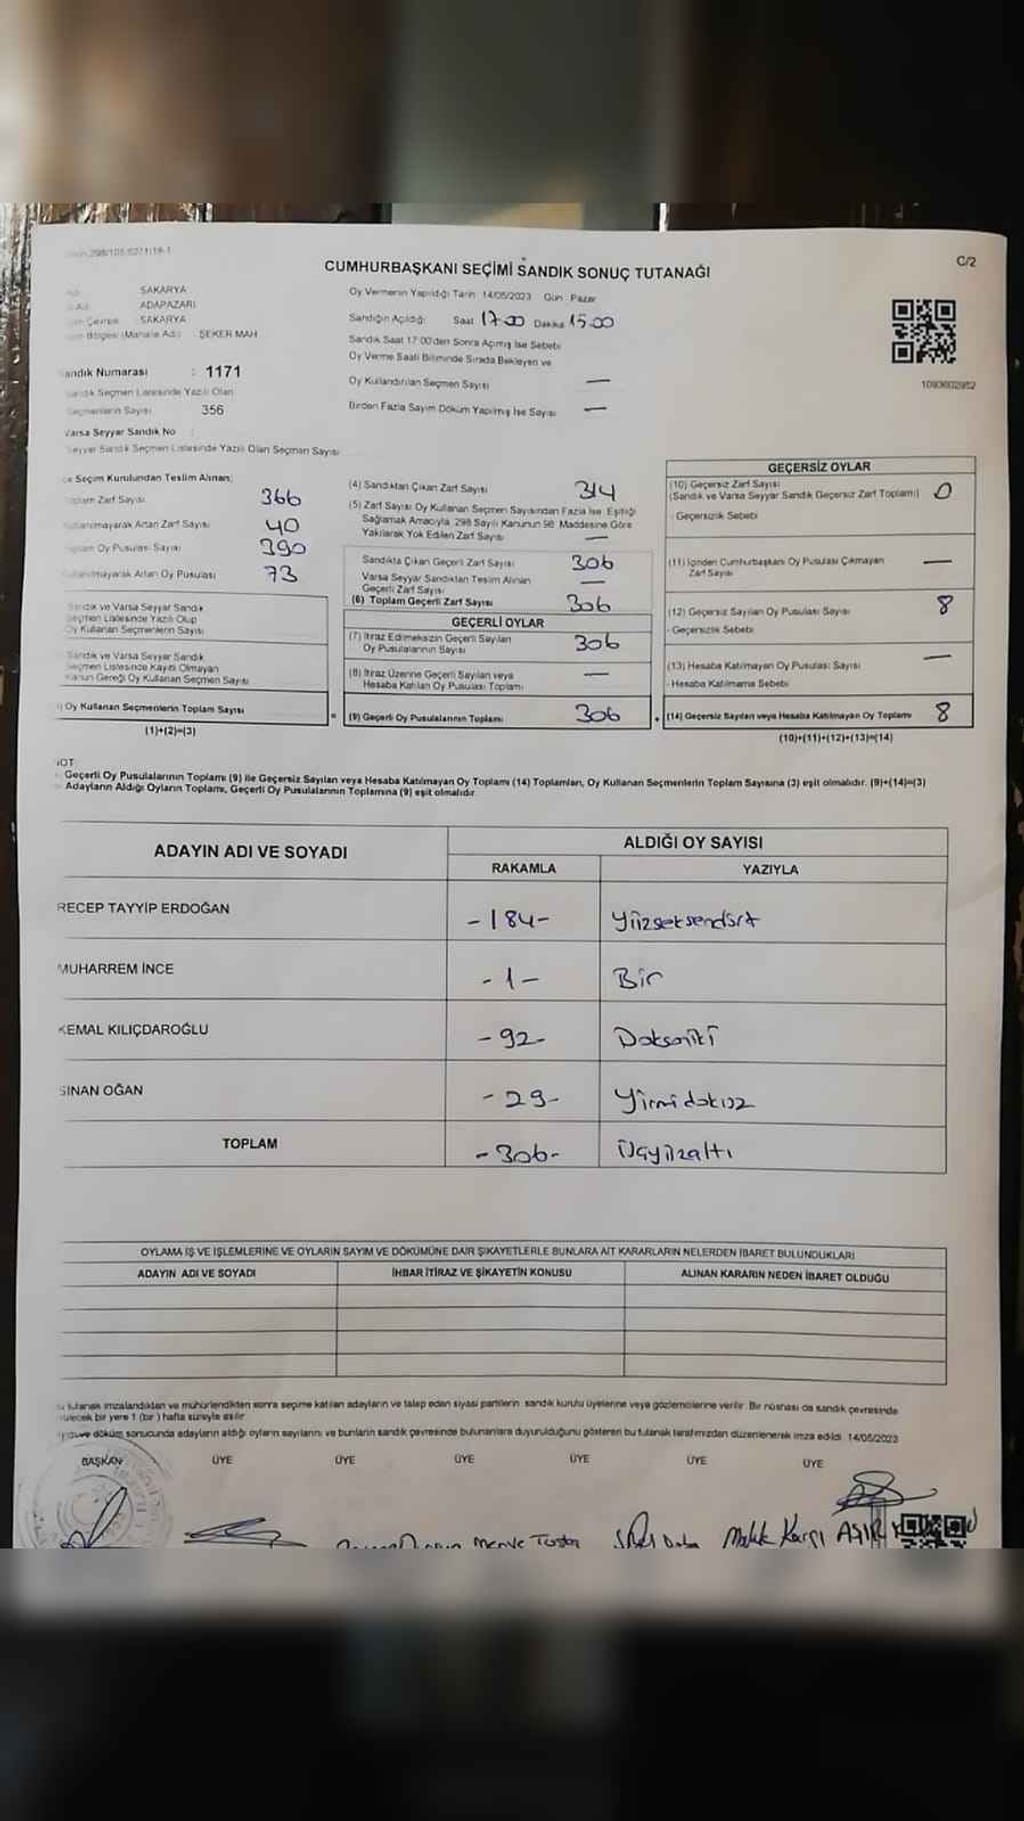 C/2
CUMHURBAŞKANI SEÇİMİ SANDIK SONUÇ TUTANAĞI
SAKARYA
ADAPAZARI
SAKARYA
ŞEKER MAH
Oy Vermenin Yapıldığı Tarih 14/05/2023 Gün Pazar
Sandığın Açıldığı Saat 17.00 Dakika 15.00
Sandık Saat 17:00'den Sonra Açılmış İse Sebebi
Oy Verme Saati Bitiminde Sırada Bekleyen ve
Oy Kullandırılan Seçmen Sayısı —
Birden Fazla Sayım Döküm Yapılmış İse Sayısı —
1093602952
Sandık Numarası : 1171
Sandık Seçmen Listesinde Yazılı Olan
Seçmenlerin Sayısı 356
Varsa Seyyar Sandık No
Seyyar Sandık Seçmen Listesinde Yazılı Olan Seçmen Sayısı
Seçim Kurulundan Teslim Alınan;
Toplam Zarf Sayısı 366
Kullanılmayarak Artan Zarf Sayısı 40
Toplam Oy Pusulası Sayısı 390
Kullanılmayarak Artan Oy Pusulası 73
Sandık ve Varsa Seyyar Sandık
Seçmen Listesinde Yazılı Olup
Oy Kullanan Seçmenlerin Sayısı
Sandık ve Varsa Seyyar Sandık
Seçmen Listesinde Kaydı Olmayan
Kanun Gereği Oy Kullanan Seçmen Sayısı
Oy Kullanan Seçmenlerin Toplam Sayısı
(1)+(2)=(3)
(4) Sandıktan Çıkan Zarf Sayısı 314
(5) Zarf Sayısı Oy Kullanan Seçmen Sayısından Fazla İse, Eşitliği
Sağlamak Amacıyla, 298 Sayılı Kanunun 98. Maddesine Göre
Yakılarak Yok Edilen Zarf Sayısı —
Sandıkta Çıkan Geçerli Zarf Sayısı 306
Varsa Seyyar Sandıktan Teslim Alınan
Geçerli Zarf Sayısı —
(6) Toplam Geçerli Zarf Sayısı 306
GEÇERLİ OYLAR
(7) İtiraz Edilmeksizin Geçerli Sayılan
Oy Pusulalarının Sayısı 306
(8) İtiraz Üzerine Geçerli Sayılan veya
Hesaba Katılan Oy Pusulası Toplamı —
= (9) Geçerli Oy Pusulalarının Toplamı 306
GEÇERSİZ OYLAR
(10) Geçersiz Zarf Sayısı
(Sandık ve Varsa Seyyar Sandık Geçersiz Zarf Toplamı) 0
- Geçersizlik Sebebi
(11) İçinden Cumhurbaşkanı Oy Pusulası Çıkmayan
Zarf Sayısı —
(12) Geçersiz Sayılan Oy Pusulası Sayısı 8
- Geçersizlik Sebebi
(13) Hesaba Katılmayan Oy Pusulası Sayısı —
- Hesaba Katılmama Sebebi
+ (14) Geçersiz Sayılan veya Hesaba Katılmayan Oy Toplamı 8
(10)+(11)+(12)+(13)=(14)
NOT
Geçerli Oy Pusulalarının Toplamı (9) ile Geçersiz Sayılan veya Hesaba Katılmayan Oy Toplamı (14) Toplamları, Oy Kullanan Seçmenlerin Toplam Sayısına (3) eşit olmalıdır. (9)+(14)=(3)
Adayların Aldığı Oyların Toplamı, Geçerli Oy Pusulalarının Toplamına (9) eşit olmalıdır
ADAYIN ADI VE SOYADI
ALDIĞI OY SAYISI
RAKAMLA YAZIYLA
RECEP TAYYİP ERDOĞAN -184- Yüzseksendört
MUHARREM İNCE -1- Bir
KEMAL KILIÇDAROĞLU -92- Doksaniki
SİNAN OĞAN -29- Yirmidokuz
TOPLAM -306- Üçyüzaltı
OYLAMA İŞ VE İŞLEMLERİNE VE OYLARIN SAYIM VE DÖKÜMÜNE DAİR ŞİKAYETLERLE BUNLARA AİT KARARLARIN NELERDEN İBARET BULUNDUKLARI
ADAYIN ADI VE SOYADI İHBAR İTİRAZ VE ŞİKAYETİN KONUSU ALINAN KARARIN NEDEN İBARET OLDUĞU
tutanak imzalandıktan ve mühürlendikten sonra seçime katılan adayların ve talep eden siyasi partilerin sandık kurulu üyelerine veya gözlemcilerine verilir. Bir nüshası da sandık çevresinde
bir yere 1 (bir) hafta süreyle asılır
döküm sonucunda adayların aldığı oyların sayılarını ve bunların sandık çevresinde bulunanlara duyurulduğunu gösteren bu tutanak tarafımızdan düzenlenerek imza edildi. 14/05/2023
BAŞKAN ÜYE ÜYE ÜYE ÜYE ÜYE ÜYE
Merve